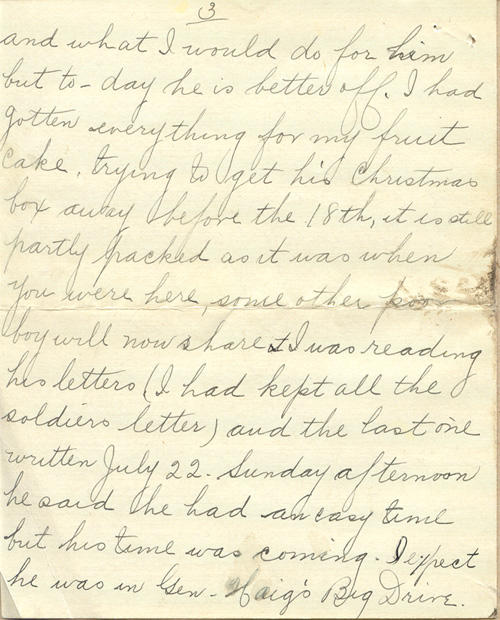 3
and what I would do for him
but to-day he is better off. I had
gotten everything for my fruit
cake, trying to get his Christmas
box away before the 18th, it is still
partly packed as it was when
you were here, some other poor
boy will now share it I was reading
his letters (I had kept all the
soldiers letter) and the last one
written July 22. Sunday afternoon
he said he had an easy time
but his time was coming. I expect
he was in Gen. Haig's Big Drive.